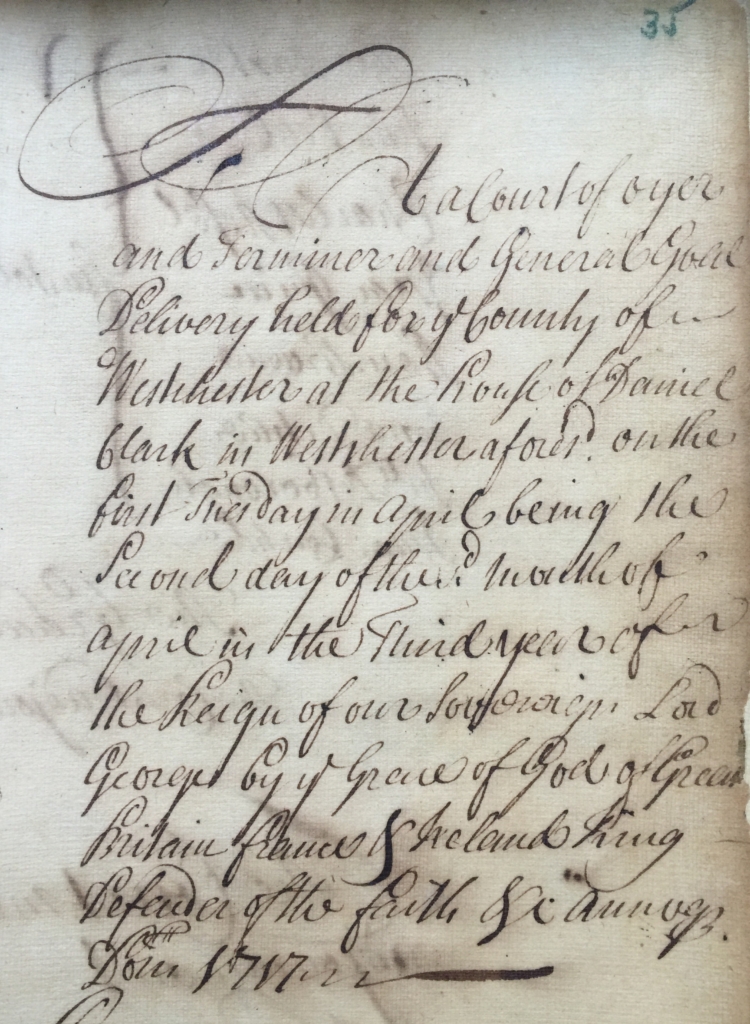 35
At a Court of oyer
and Terminer and General Goal
Delivery held for ye County of
Westchester at the house of Daniel
Clark in Westchester aforesd. on the
first Tuesday in April being the
Second day of the sd. month off
April in the Third year of
the Reign of our Sovereign Lord
George by ye Grace of God of Great
Britain france & Ireland King
Defender of the faith &c Annoq.
Dom 1717